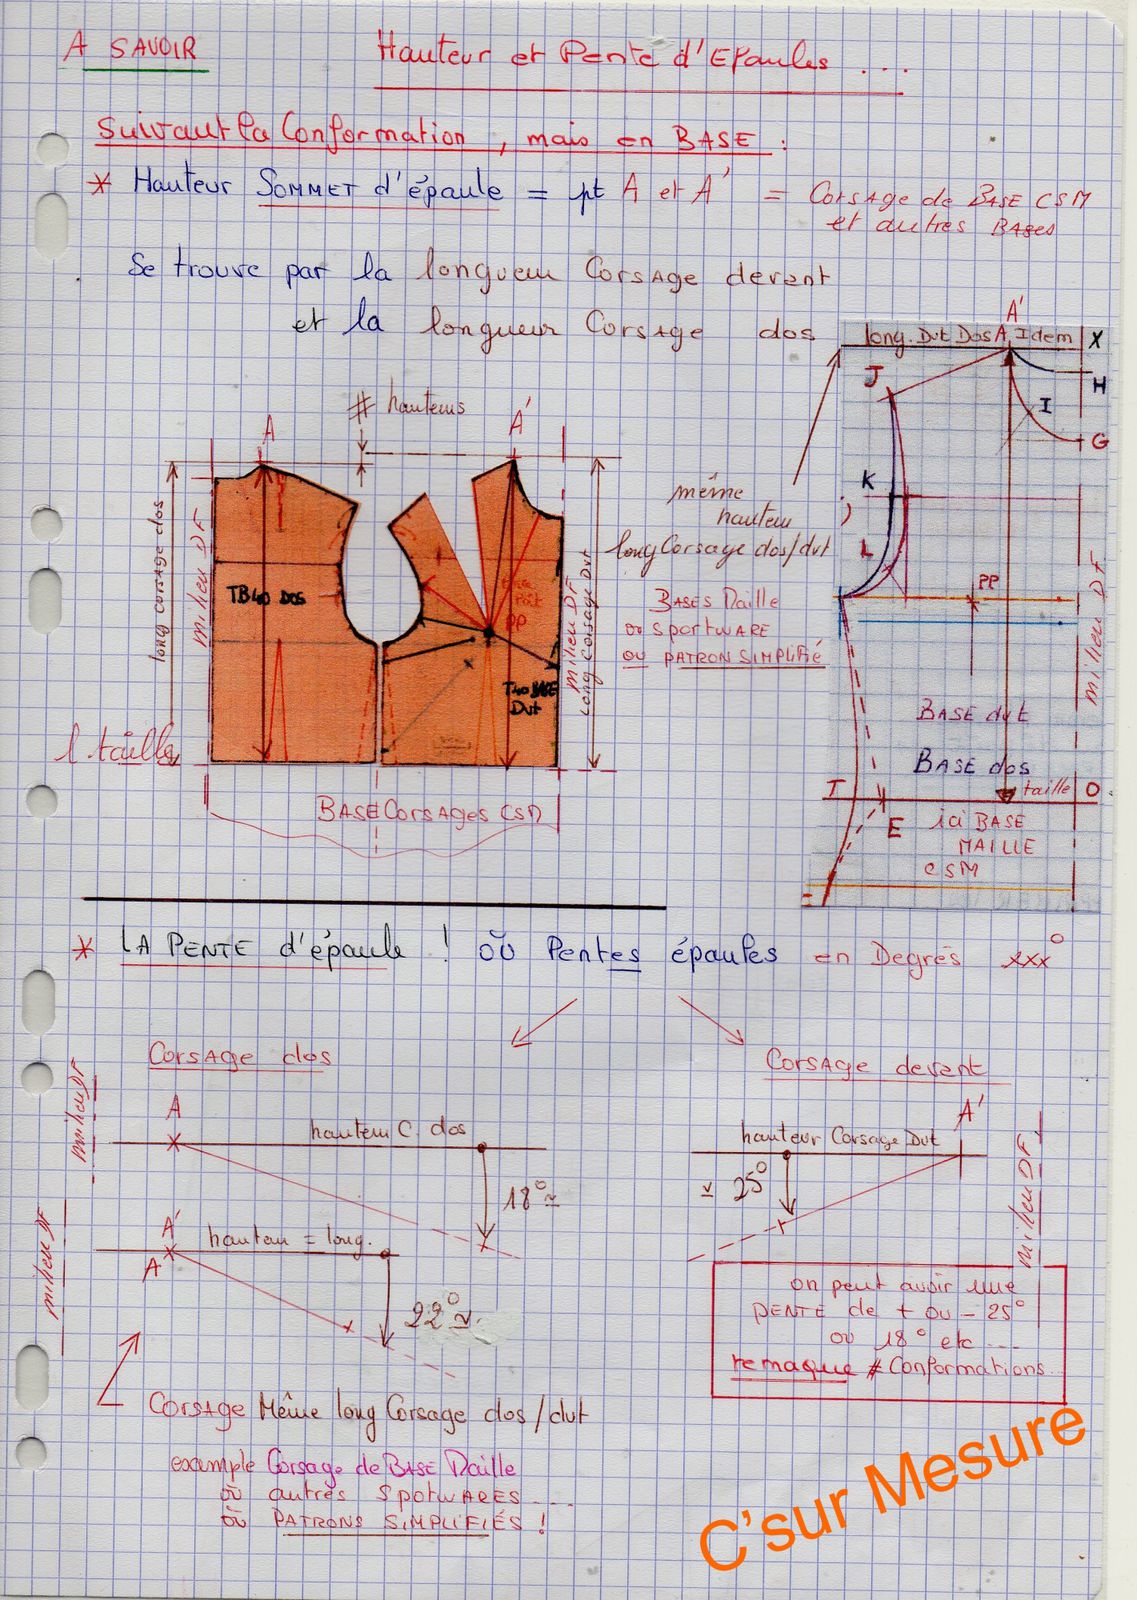 A SAVOIR
Hauteur et Pente d'Epaules ...
Suivant la Conformation, mais en BASE :
* Hauteur SOMMET d'épaule = pt A et A' = Corsage de BASE CSM
et autres BASES
Se trouve par la longueur Corsage devant
et la longueur Corsage dos
A'
long. Dvt Dos A, Idem X
J
H
I
G
K
L
PP
milieu DF
BASE dvt
BASE dos
T
taille O
E
ici BASE
MAILLE
CSM
# hauteurs
A
A'
long corsage dos
milieu DF
TB40 DOS
PP
T40 BASE
Dvt
milieu DF
Long Corsage Dvt
même
hauteur
long Corsage dos/dvt
BASES Maille
ou SPORTWARE
ou PATRON SIMPLIFIÉ
l taille
BASE Corsages CSM
* LA PENTE d'épaule ! où Pentes épaules en Degrés xxx°
Corsage dos
Corsage devant
milieu DF
A
hauteur C. dos
18° ≃
A'
hauteur Corsage Dvt
≃ 25°
milieu DF
milieu DF
A'
A
hauteur = long.
22° ≃
on peut avoir une
PENTE de + ou - 25°
ou 18° etc ...
remaque # Conformations...
Corsage Même long Corsage dos/dvt
example Corsage de BASE Maille
où autres SPOTWARES ...
où PATRONS SIMPLIFIÉS !
C'sur Mesure